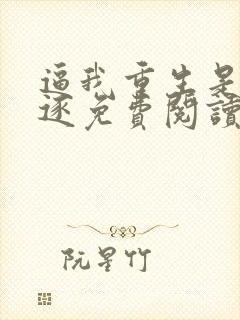 逼我重生是
逐免費閱讀
阮星竹